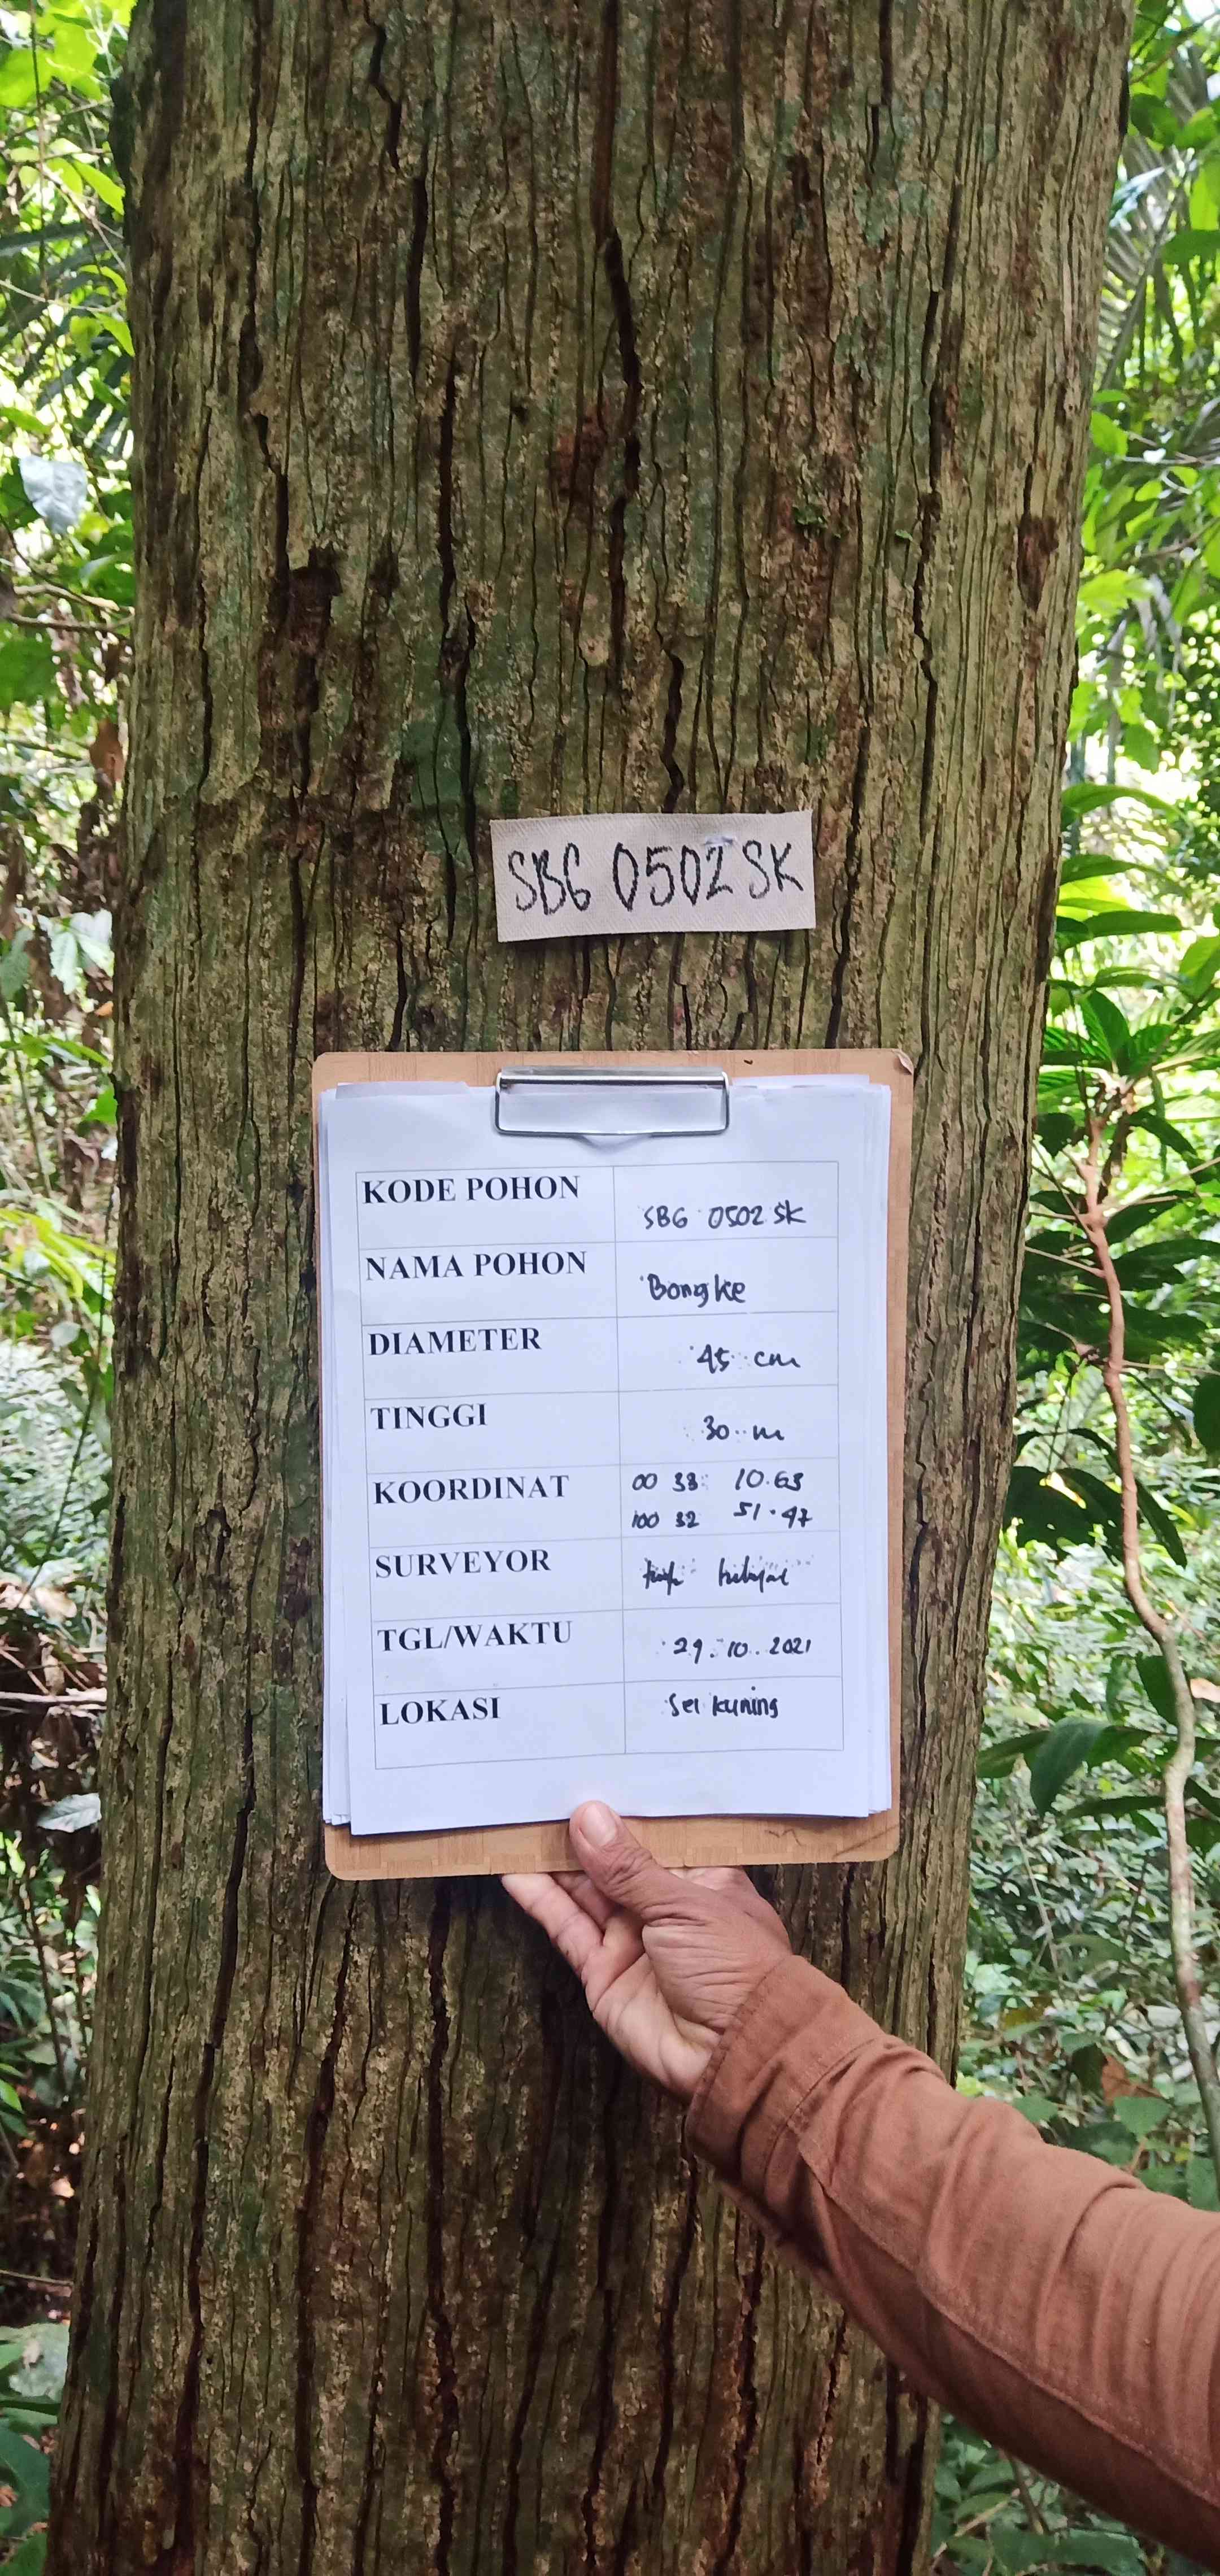 SBG 0502 SK
KODE POHON SBG 0502 SK
NAMA POHON Bongke
DIAMETER 45 cm
TINGGI 30 m
KOORDINAT 00 33 10.63
100 32 51.47
SURVEYOR
TGL/WAKTU 29.10.2021
LOKASI Sei kuning